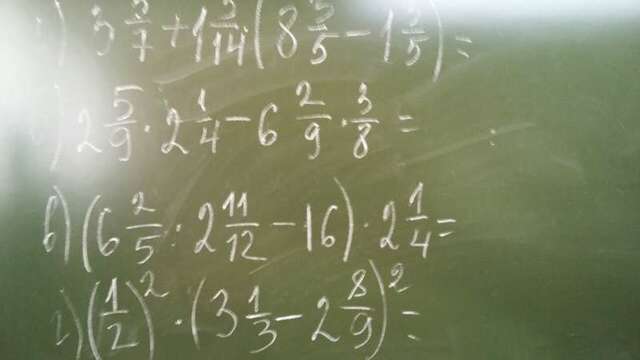 3 3/7 + 1 3/14 (8 3/5 - 1 3/5) =
2 5/9 · 2 1/4 - 6 2/9 · 3/8 =
в) (6 2/5 · 2 11/12 - 16) · 2 1/4 =
г) (1/2)² · (3 1/3 - 2 8/9)² =